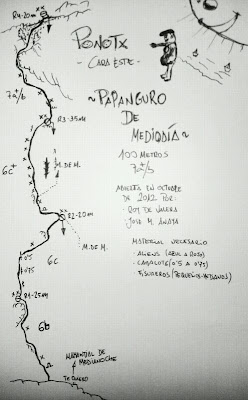 R4-20m
PONOTX
- CARA ESTE -
7a+/b
~ PAPANGURO
DE
MEDIODÍA ~
R3-35m
100 METROS
7a+/b
M. DE M.
ABIERTA EN OCTUBRE
DE 2012 POR:
- ROY DE VALERA
- JOSE M. ANAYA
6c+
R2-20m
M. DE M.
MATERIAL NECESARIO
- ALIENS (AZUL A ROJO)
- CAMALOTS (0'5 A 0'75)
- FISUREROS (PEQUEÑOS-MEDIANOS)
6c
0'5
0'75
R1-25m
6b
MANANTIAL DE
MEDIANOCHE